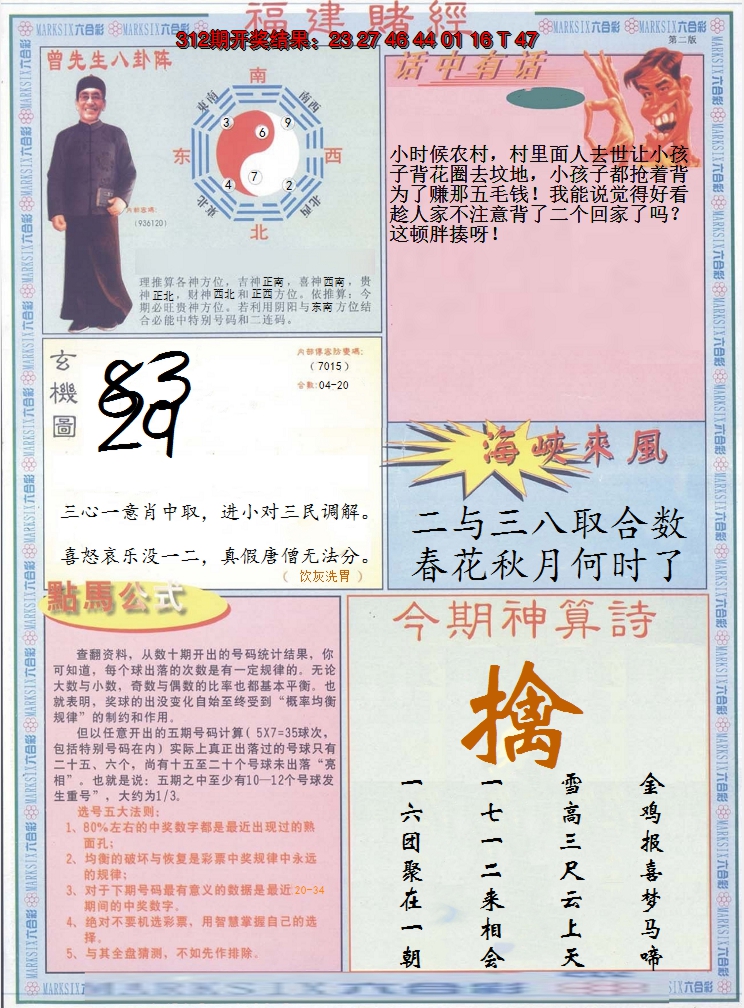 福建賭經
312期开奖结果：23 27 46 44 01 16 T 47
第二版
MARKSIX六合彩
曾先生八卦阵
南
东南
西南
3
9
6
东
西
7
4
2
東北
西北
北
內部密碼:
(936120)
理推算各神方位，吉神正南，喜神西南，贵
神正北，财神西北和正西方位。依推算：今
期必旺贵神方位。若利用阴阳与东南方位结
合必能中特别号码和二连码。
话中有话
小时候农村，村里面人去世让小孩
子背花圈去坟地，小孩子都抢着背
为了赚那五毛钱！我能说觉得好看
趁人家不注意背了二个回家了吗？
这顿胖揍呀！
玄機圖
83
29
（7015）
合数:04-20
三心一意肖中取，进小对三民调解。
喜怒哀乐没一二，真假唐僧无法分。
（ 饮灰洗胃 ）
海峽來風
二与三八取合数
春花秋月何时了
點馬公式
查翻资料，从数十期开出的号码统计结果，你
可知道，每个球出落的次数是有一定规律的。无论
大数与小数，奇数与偶数的比率也都基本平衡。也
就表明，奖球的出没变化自始至终受到“概率均衡
规律”的制约和作用。
但以任意开出的五期号码计算( 5X7=35球次，
包括特别号码在内）实际上真正出落过的号球只有
二十五、六个，尚有十五至二十个号球未出落“亮
相”。也就是说：五期之中至少有10—12个号球发
生重号”，大约为1/3。
选号五大法则：
1、80%左右的中奖数字都是最近出现过的熟
面孔；
2、均衡的破坏与恢复是彩票中奖规律中永远
的规律；
3、对于下期号码最有意义的数据是最近20-34
期间的中奖数字。
4、绝对不要机选彩票，用智慧掌握自己的选
择。
5、与其全盘猜测，不如先作排除。
今期神算詩
擒
金鸡报喜梦马啼
雪高三尺云上天
一七一二来相会
一六团聚在一朝